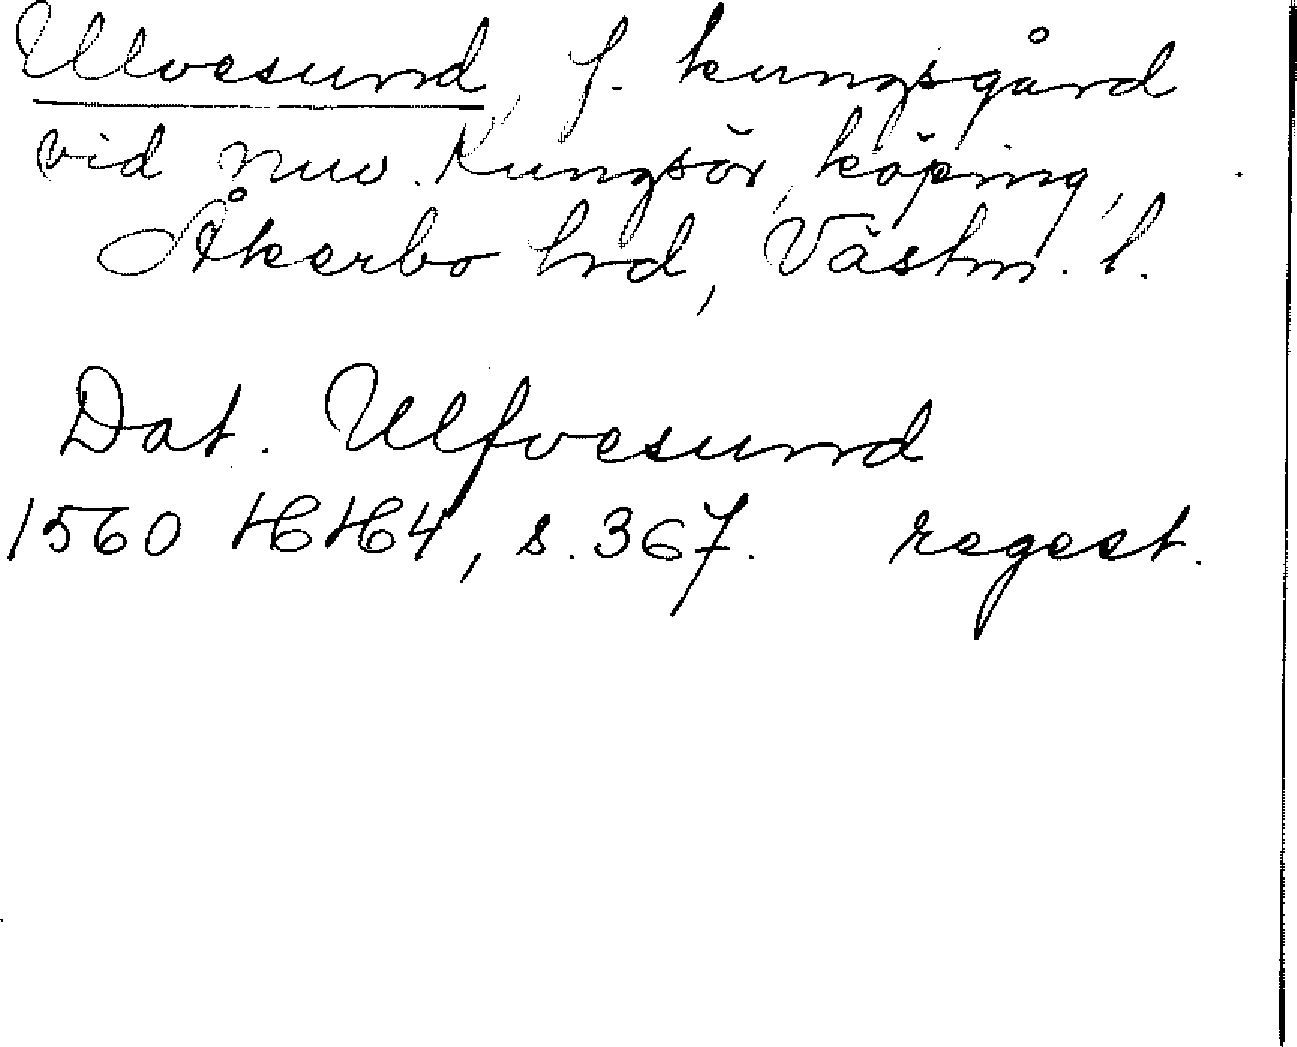 Ulvesund, f. kungsgård
vid nuv. Kungsör, köping,
Åkerbo hrd, Västm. l.
Dat. Ulfvesund
1560 HH4, s. 367. regest.